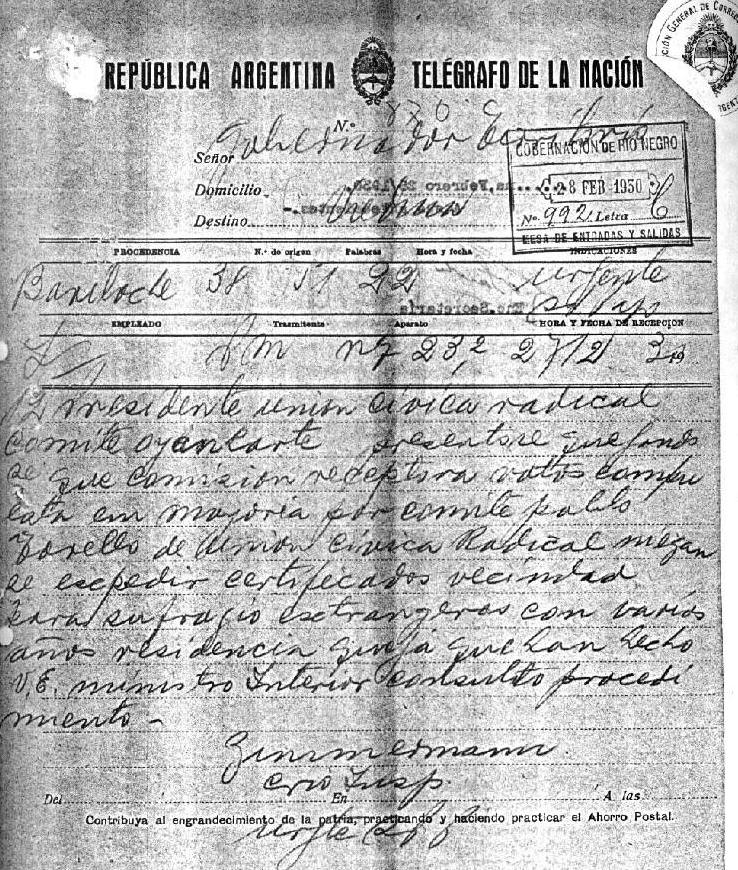 REPÚBLICA ARGENTINA TELÉGRAFO DE LA NACIÓN
N.º 876
Señor Gobernador Territorio
Domicilio
Destino Viedma
GOBERNACIÓN DE RIO NEGRO
28 FEB 1930
No. 992 Letra
MESA DE ENTRADAS Y SALIDAS
PROCEDENCIA N.º de origen Palabras Hora y fecha INDICACIONES
Bariloche 38 51 22 urgente
EMPLEADO Trasmitente Aparato HORA Y FECHA DE RECEPCIÓN
23,2 27/2 30
12 Presidente union civica radical
comite oyanharte presentose quejando
se que comision receptora votos compu
esta em mayoria por comite pablo
Torello de Union Civica Radical niegan
se expedir certificados vecindad
para sufragio extrangeros con varios
años residencia queja que han hecho
V.E. ministro Interior consulto procedi
miento -
Zimmermann
crio Insp.
Del En A las
Contribuya al engrandecimiento de la patria, practicando y haciendo practicar el Ahorro Postal.